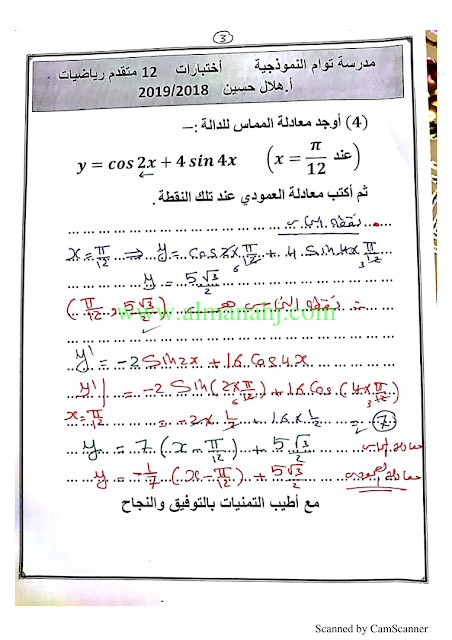 3
مدرسة توام النموذجية أختبارات 12 متقدم رياضيات
أ.هلال حسين 2019/2018
(4) أوجد معادلة المماس للدالة :–
y = cos 2x + 4 sin 4x (x = π/12 عند)
ثم أكتب معادلة العمودي عند تلك النقطة .
نقطة التماس
x = π/12 ⇒ y = cos 2x π/12 + 4 sin 4x π/12
6 3
y = 5√3/2
∴ نقطة التماس هي (π/12 , 5√3/2)
www.almanahj.com
y' = -2 sin 2x + 16 cos 4x
y'| = -2 sin (2x π/12) + 16 cos (4x π/12)
6 3
x = π/12 = -2x 1/2 + 16 x 1/2 = 7
y = 7 (x - π/12) + 5√3/2 معادلة المماس
y = -1/7 (x - π/12) + 5√3/2 معادلة العمودي
مع أطيب التمنيات بالتوفيق والنجاح
Scanned by CamScanner